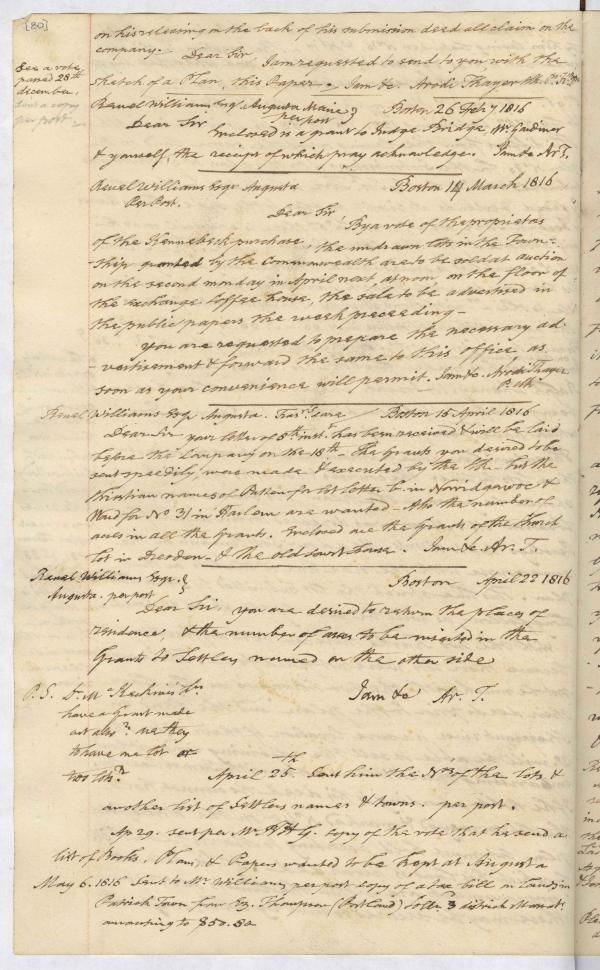 [80]
on his releasing on the back of his submission deed all claim on the
company. — Dear Sir
See a vote
passed 28th
december,
sent a copy
per post —
I am requested to send to you with the
sketch of a Plan, this Paper — I am &c. Arodi Thayer
Reuel Williams Esqr Augusta Maine } Boston 26 Feby 1816
per post
Dear Sir
Enclosed is a grant to Judge Bridge, Mr. Gardiner
& yourself, the receipt of which pray acknowledge. I am &c Ar T.
Reuel Williams Esqr Augusta Boston 14 March 1816
Per Post.
Dear Sir
By a vote of the proprietors
of the Kennebeck purchase, the undrawn lots in the Town-
-ship granted by the Commonwealth are to be sold at auction
on the second monday in April next at noon, on the floor of
the exchange Coffee house, the sale to be advertised in
the public papers the week preceeding —
You are requested to prepare the necessary ad-
-vertisement & forward the same to this office, as
soon as your convenience will permit. I am &c. Arodi Thayer
Reuel Williams Esqr Augusta. / Boston 15 April 1816
Dear Sir your letter of 8th inst. has been received & will be laid
before the Company on the 18th — The Grants you desired to be
sent speedily were made & executed by the but the
Christian names of Patten for lot letter in Norridgewock &
Ward for No 31 in Harlem are wanted — Also the number of
acres in all the Grants. Enclosed are the Grants of the Church
lot in Dresden — & the old Court house. I am &c. Ar. T.
Reuel Williams Esqr. } Boston April 22 1816
Augusta. per post
Dear Sir, you are desired to return the places of
residence, & the number of acres to be inserted in the
Grants to Settlers named on the other side
I am &c Ar. T.
P.S. Dr. Mc
have a Grant made
out also are they
to have one lot or
two lots
April 25th Sent him the Nos of the lots &
another list of Settlers names & towns. per post.
Ap 29. sent per Mr. R H G. copy of the vote that he send a
list of Books, Plans, & Papers wanted to be kept at Augusta
May 6. 1816 Sent to Mr. Williams per post copy of a tax bill on Lands in
Patrick Town from Esq. Thompson (Portland) Collr 3 district
amounting to $50.80